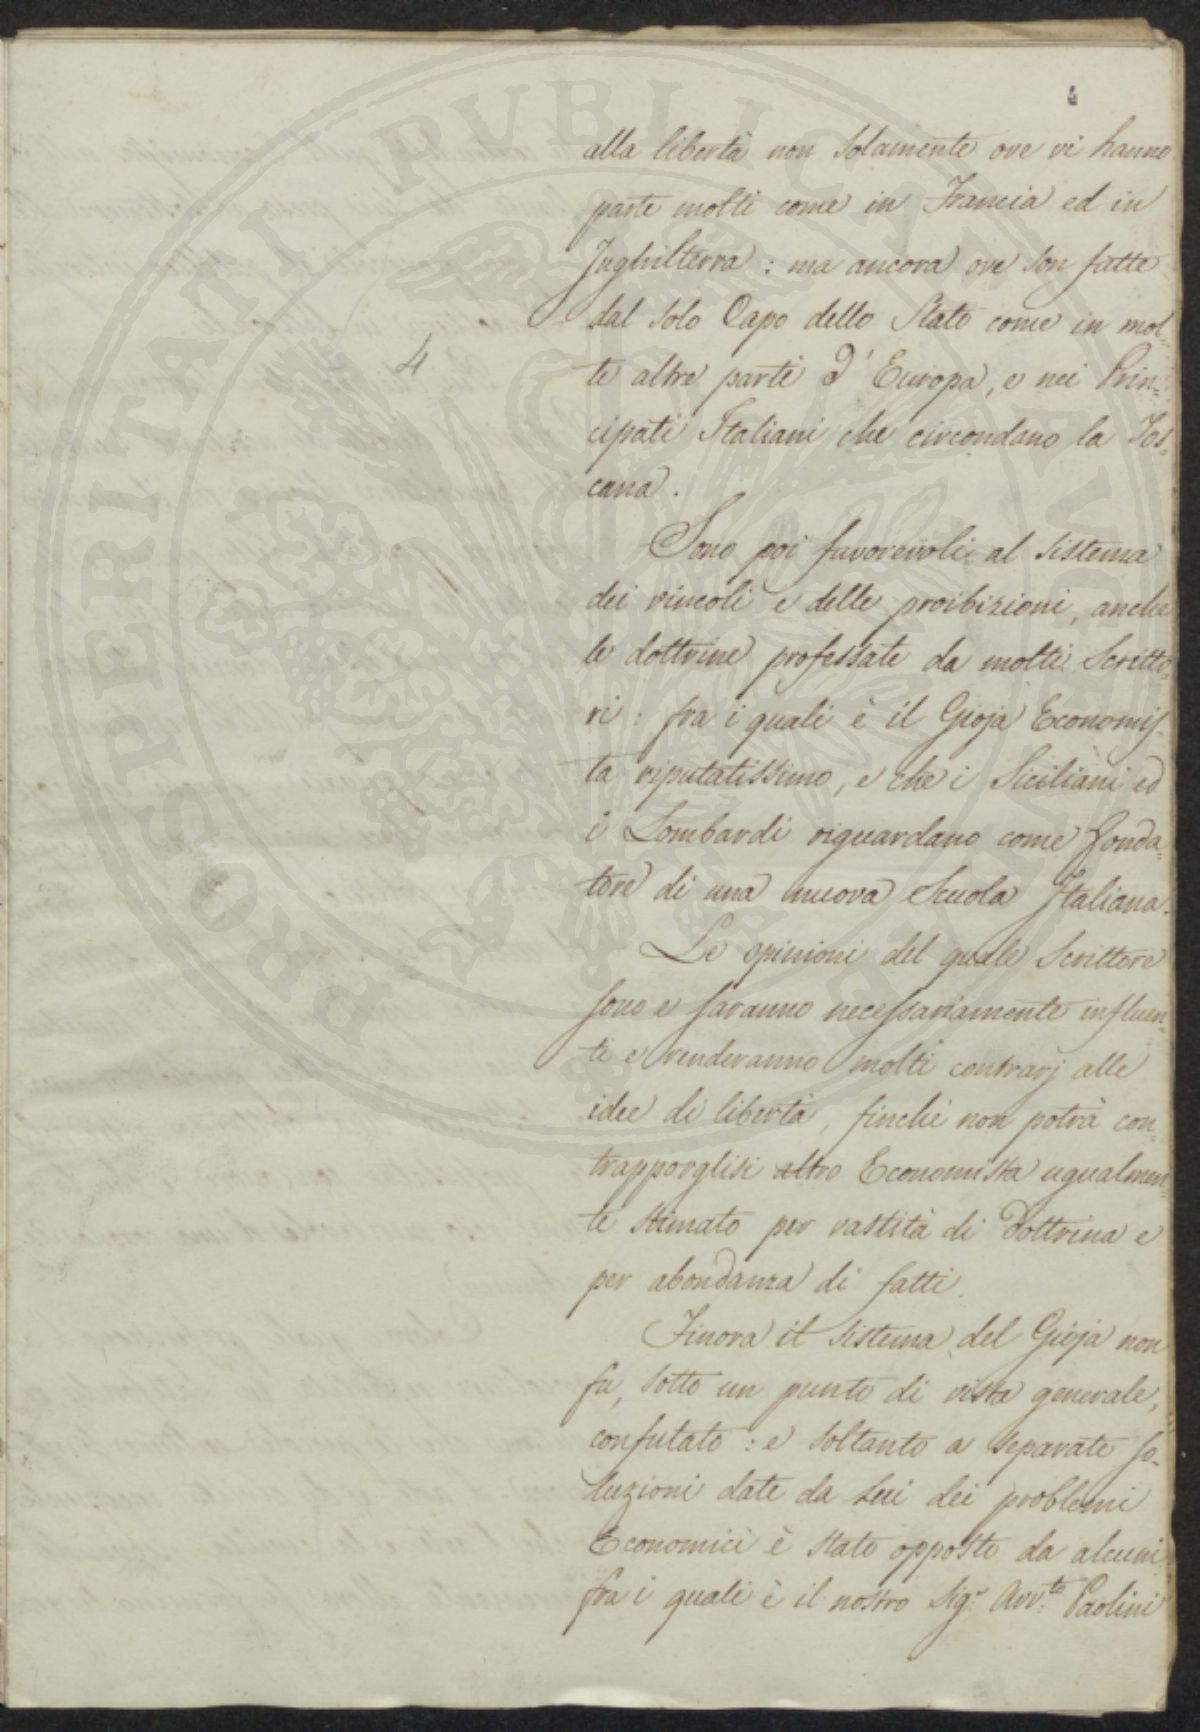 4
alla libertà non solamente ove vi hanno
parte molti come in Francia ed in
Inghilterra : ma ancora ove son fatte
dal solo Capo dello Stato come in mol-
4
te altre parti d'Europa, e nei Prin-
cipati Italiani che circondano la Tos-
cana.
Sono poi favorevoli al sistema
dei vincoli e delle proibizioni, anche
le dottrine professate da molti Scritto-
ri : fra i quali è il Gioja Economis-
ta riputatissimo, e che i Siciliani ed
i Lombardi riguardano come fonda-
tore di una nuova Scuola Italiana.
Le opinioni del quale Scrittore
sono e saranno necessariamente influen-
ti e renderanno molti contrarj alle
idee di libertà, finchè non potrà con-
trapporglisi altro Economista ugualmen-
te stimato per vastità di dottrina e
per abondanza di fatti.
Finora il sistema del Gioja non
fu, sotto un punto di vista generale,
confutato : e soltanto a separate so-
luzioni date da lui dei problemi
Economici è stato opposto da alcuni
fra i quali è il nostro Sig.r Avv.to Paolini
PROSPERITATI PVBLICAE AVGENDAE